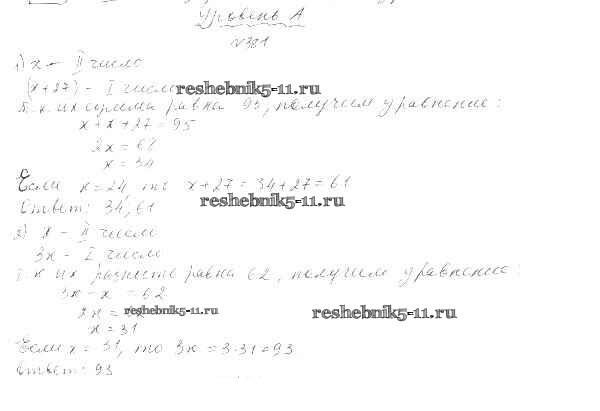 Уровень А
№381
1) x - II число
(x+27) - I число
reshebnik5-11.ru
т.к. их сумма равна 95, получим уравнение:
x+x+27=95
2x=68
x=34
Если x=24, то x+27=34+27=61
reshebnik5-11.ru
Ответ: 34, 61
2) x - II число
3x - I число
т.к их разность равна 62, получим уравнение:
3x-x=62
2x=
reshebnik5-11.ru
reshebnik5-11.ru
x=31
Если x=31, то 3x=3·31=93
Ответ: 93